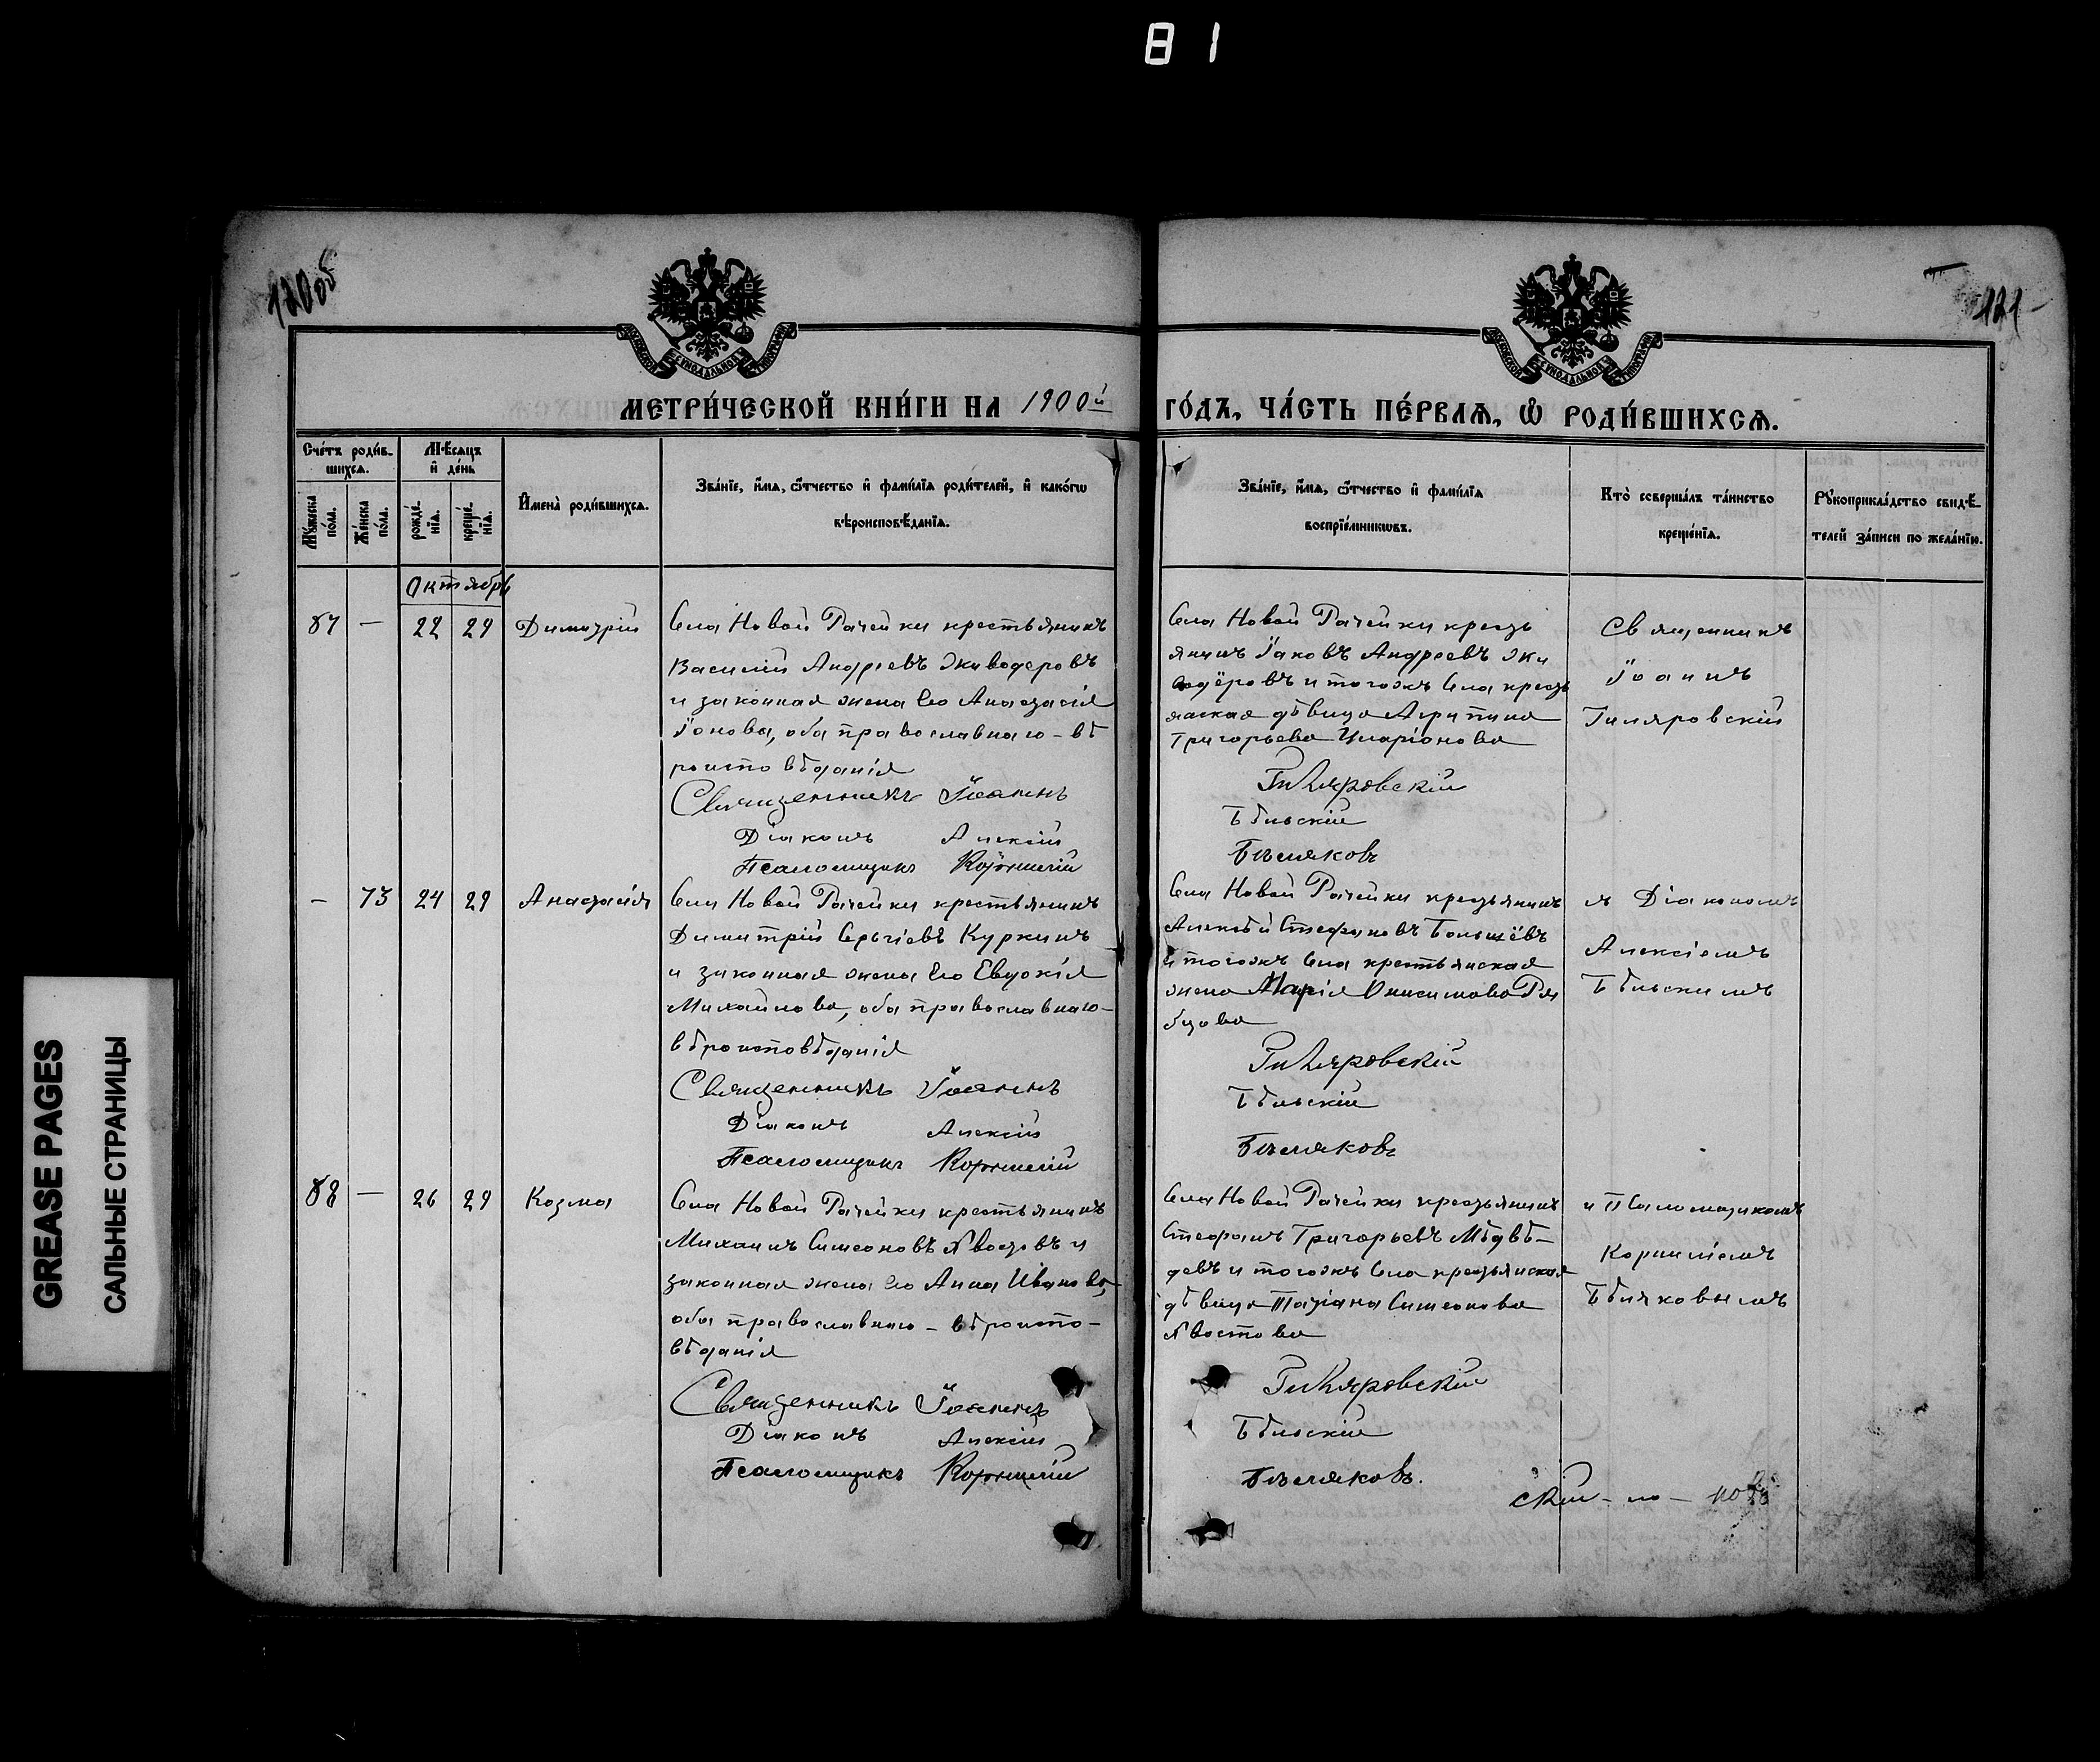 81
GREASE PAGES
САЛЬНЫЕ СТРАНИЦЫ
120об
121
МОСКОВСКОЙ СѴНОДАЛЬНОЙ ТИПОГРАФІИ
МОСКОВСКОЙ СѴНОДАЛЬНОЙ ТИПОГРАФІИ
МЕТРИ́ЧЕСКОЙ КНИ́ГИ НА 1900й
ГО́ДЪ, ЧА́СТЬ ПЕ́РВАѦ, Ѡ҆ РОДИ́ВШИХСѦ.
Сче́тъ роди́в-
шихсѧ.
Мꙋ́жеска по́ла.
Же́нска по́ла.
Мѣ́сяцъ
и҆ де́нь
рожде́нїѧ.
креще́нїѧ.
И҆мена̀ роди́вшихсѧ.
Зва́нїе, и҆́мѧ, ѻ҆́тчество и҆ фами́лїѧ роди́телей, и҆ како́гѡ
вѣроисповѣ́данїѧ.
Зва́нїе, и҆́мѧ, ѻ҆́тчество и҆ фами́лїѧ
воспрїе́мникѡвъ.
Кто̀ соверша́лъ та́инство
креще́нїѧ.
Рꙋкоприкла́дство свидѣ́-
телей за́писи по жела́нїю.
Октябрь
87 — 22 29 Димитрій
Села Новой Рачейки крестьянинъ
Василій Андреевъ Живодеровъ
и законная жена его Анастасія
Іонова, оба православнаго - вѣ
роисповѣданія
Священникъ Іоаннъ
Діаконъ Алексій
Псаломщикъ Корнилій
Села Новой Рачейки кресть
янинъ Іаковъ Андреевъ Жи
водёровъ и тогожъ Села кресть
янская дѣвица Агрипина
Григорьева Иларіонова
Гиляровскій
Бѣльскій
Бѣляковъ
Священникъ
Іоаннъ
Гиляровскій
— 73 24 29 Анастасія
Села Новой Рачейки крестьянинъ
Димитрій Сергіевъ Куркинъ
и законная жена его Евдокія
Михайлова, оба православнаго-
вѣроисповѣданія
Священникъ Іоаннъ
Діаконъ Алексій
Псаломщикъ Корнилій
Села Новой Рачейки крестьянинъ
Алексѣй Стефановъ
и тогожъ Села крестьянская
жена Марія Онисимова Ря
бцова
Гиляровскій
Бѣльскій
Бѣляковъ
съ Діакономъ
Алексіемъ
Бѣльскимъ
88 — 26 29 Козма
Села Новой Рачейки крестьянинъ
Михаилъ Симеоновъ Хвостовъ и
законная жена его Анна Иванова,
оба православнаго - вѣроиспо-
вѣданія
Священникъ Іоаннъ
Діаконъ Алексій
Псаломщикъ Корнилій
Села Новой Рачейки крестьянинъ
Стефанъ Григорьевъ Мѣдвѣ-
девъ и тогожъ Села крестьянская
дѣвица Татіана Симеонова
Хвостова
Гиляровскій
Бѣльскій
Бѣляковъ.
и Псаломщикомъ
Корниліемъ
Бѣляковымъ